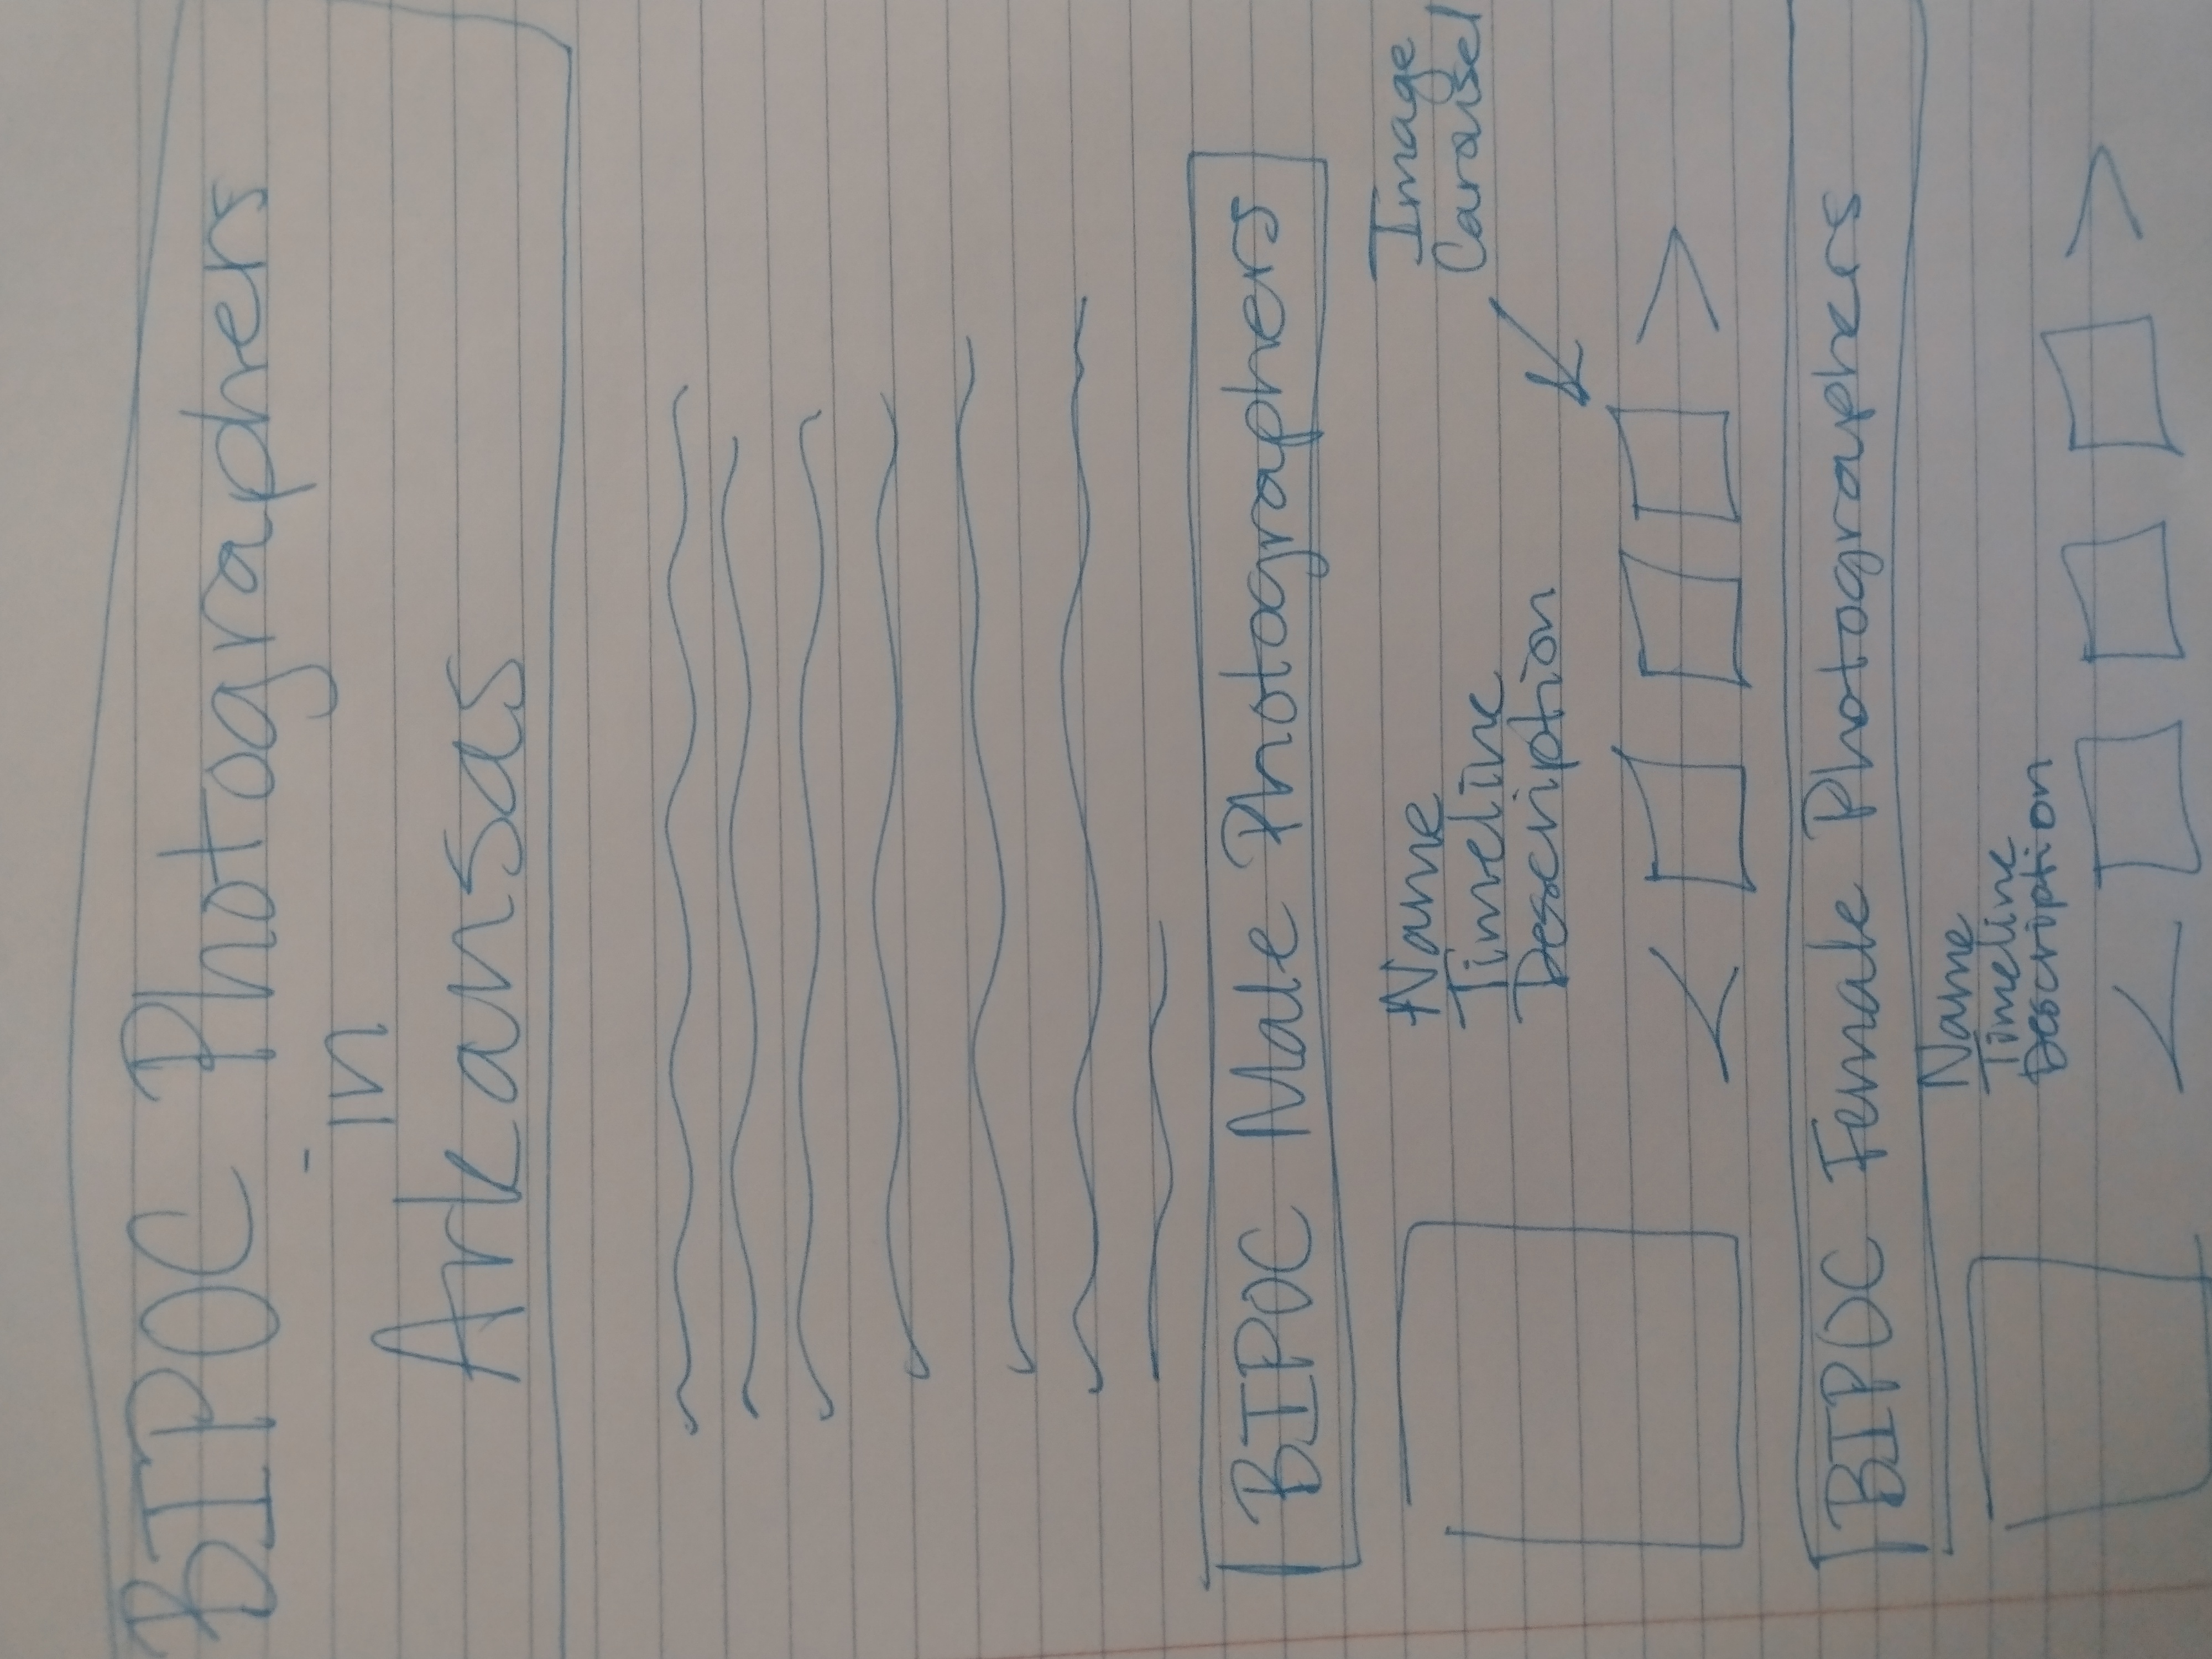 BIPOC Photographers
in
Arkansas
BIPOC Male Photographers
Name
Timeline
Description
Image
Carousel
BIPOC Female Photographers
Name
Timeline
Description